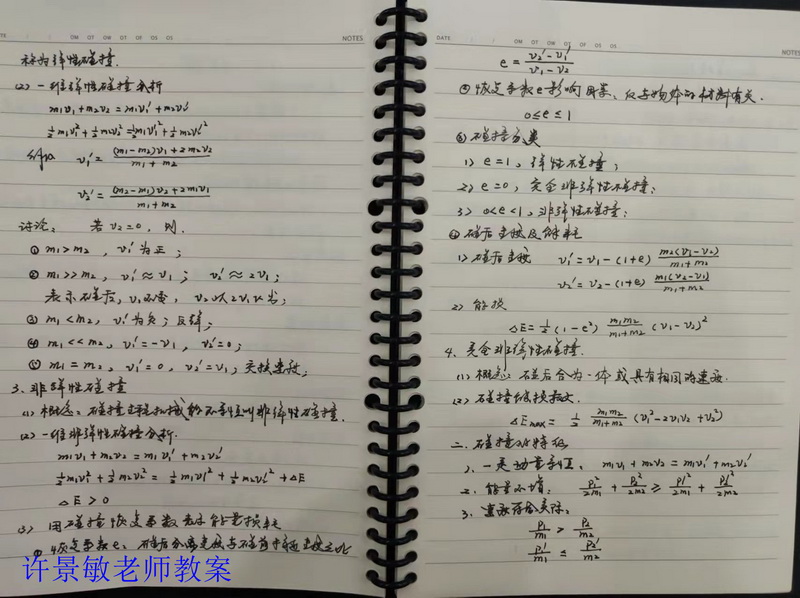 DATE
NOTES
称为弹性碰撞.
(2) 一维弹性碰撞分析
m₁v₁+m₂v₂=m₁v₁′+m₂v₂′
½m₁v₁²+½m₂v₂²=½m₁v₁′²+½m₂v₂′²
v₁′=((m₁-m₂)v₁+2m₂v₂)/(m₁+m₂)
v₂′=((m₂-m₁)v₂+2m₁v₁)/(m₁+m₂)
讨论: 若 v₂=0, 则.
① m₁>m₂, v₁′为正;
② m₁>>m₂, v₁′≈v₁; v₂′≈2v₁;
表示碰后, v₁不变, v₂以2v₁
③ m₁<m₂, v₁′为负; 反弹;
④ m₁<<m₂, v₁′=-v₁, v₂′=0;
⑤ m₁=m₂, v₁′=0, v₂′=v₁; 交换速度;
3. 非弹性碰撞
(1) 概念: 碰撞过程机械能不守恒叫非弹性碰撞.
(2) 一维非弹性碰撞分析.
m₁v₁+m₂v₂=m₁v₁′+m₂v₂′
½m₁v₁²+½m₂v₂²=½m₁v₁′²+½m₂v₂′²+ΔE
ΔE>0
(3) 用碰撞恢复系数表示能量损耗
① 恢复系数e: 碰后分离速度与碰前接近速度之比
许景敏老师教案
DATE
NOTES
e=(v₂′-v₁′)/(v₁-v₂)
② 恢复系数e影响因素, 仅与物体的材料有关.
0≤e≤1
③ 碰撞分类
1) e=1, 弹性碰撞;
2) e=0, 完全非弹性碰撞;
3) 0<e<1, 非弹性碰撞;
④ 碰后速度及能耗
1) 碰后速度 v₁′=v₁-(1+e) m₂(v₁-v₂)/(m₁+m₂)
v₂′=v₂-(1+e) m₁(v₂-v₁)/(m₁+m₂)
2) 能损
ΔE=½(1-e²) m₁m₂/(m₁+m₂) (v₁-v₂)²
4. 完全非弹性碰撞.
(1) 概念: 碰后合为一体或具有相同的速度.
(2) 碰撞能损最大.
ΔEmax=½ m₁m₂/(m₁+m₂) (v₁²-2v₁v₂+v₂²)
二. 碰撞的特征
1. 动量守恒, m₁v₁+m₂v₂=m₁v₁′+m₂v₂′
2. 能量不增: P₁²/2m₁+P₂²/2m₂≥P₁′²/2m₁+P₂′²/2m₂
3. 速度符合实际:
P₁/m₁>P₂/m₂
P₁′/m₁≤P₂′/m₂